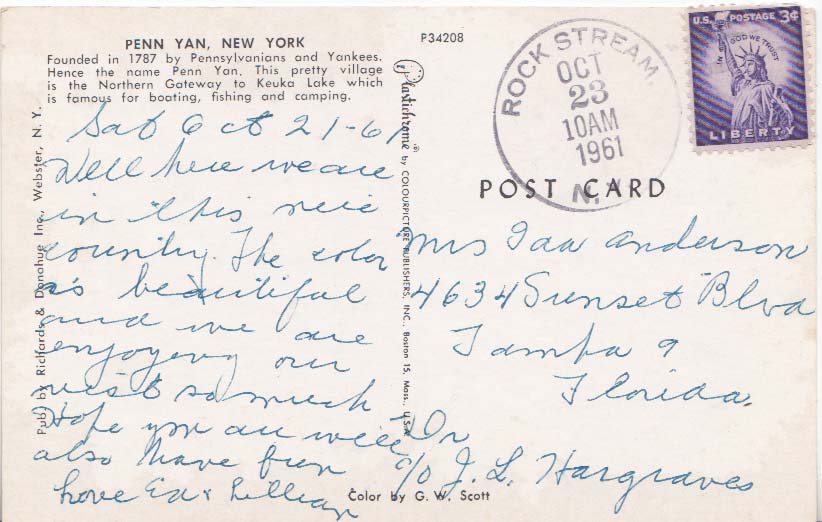 PENN YAN, NEW YORK
Founded in 1787 by Pennsylvanians and Yankees.
Hence the name Penn Yan. This pretty village
is the Northern Gateway to Keuka Lake which
is famous for boating, fishing and camping.
Sat Oct 21-61
Well here we are
in this nice
country. The color
is beautiful
and we are
enjoyeng our
visit so much
Hope you are well
also have fun
Love Ed & Lillian
Pub. by Richards & Donohue Inc., Webster, N. Y.
Plastichrome ® by COLOURPICTURE PUBLISHERS, INC., Boston 15, Mass., U.S.A.
Color by G. W. Scott
P34208
ROCK STREAM,
OCT
23
10AM
1961
N.Y.
U.S. POSTAGE 3¢
IN GOD WE TRUST
LIBERTY
POST CARD
Mrs Ida Anderson
4634 Sunset Blvd
Tampa 9
Florida.
c/o J. L. Hargraves